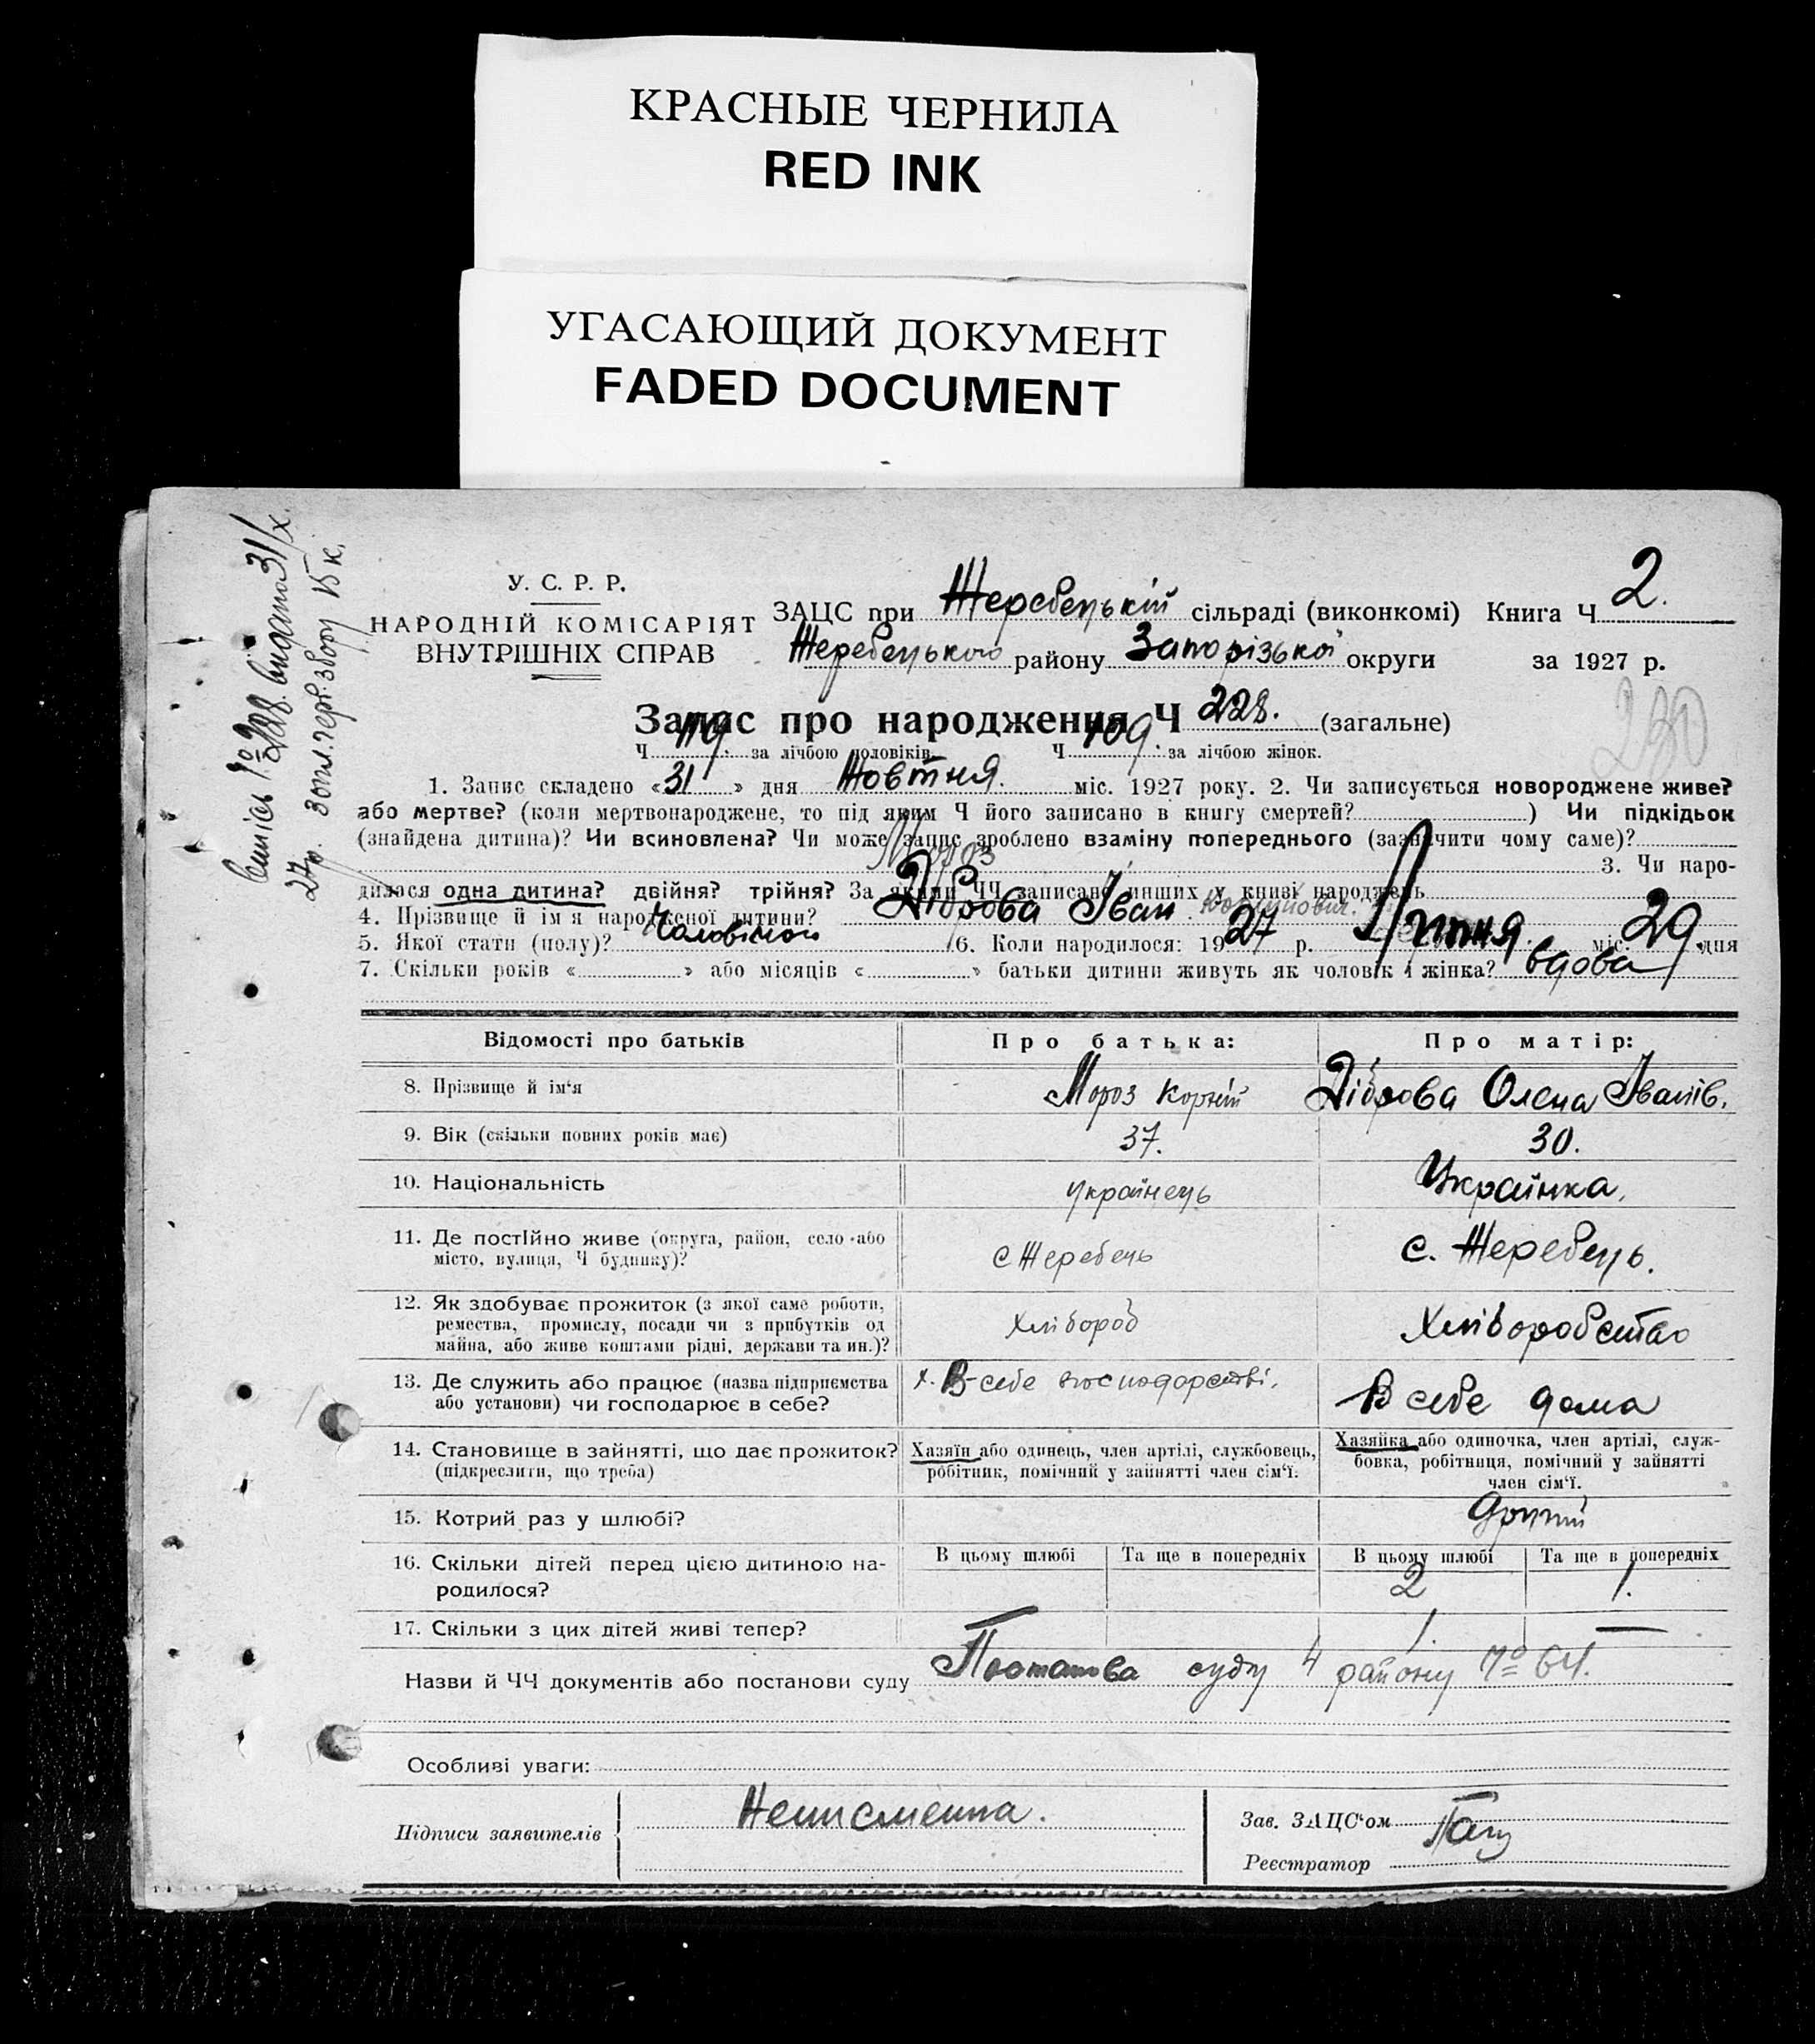 КРАСНЫЕ ЧЕРНИЛА
RED INK
УГАСАЮЩИЙ ДОКУМЕНТ
FADED DOCUMENT
видано 31/х.
27р. герб. збору 15 к.
У. С. Р. Р.
НАРОДНІЙ КОМІСАРІЯТ
ВНУТРІШНІХ СПРАВ
ЗАЦС при Жеребецькій сільраді (виконкомі) Книга Ч 2.
Жеребецького району Запорізької округи за 1927 р.
230
Запис про народження Ч 228. (загальне)
Ч 119 за лічбою чоловіків. Ч 109. за лічбою жінок.
1. Запис складено «31» дня Жовтня. міс. 1927 року. 2. Чи записується новороджене живе?
або мертве? (коли мертвонароджене, то під яким Ч його записано в книгу смертей? ) Чи підкідьок
(знайдена дитина)? Чи всиновлена? Чи може запис зроблено взаміну попереднього (зазначити чому саме)?
3. Чи наро-
Мороз
дилася одна дитина? двійня? трійня? За якими ЧЧ записано инших у книзі народжень
4. Прізвище й ім'я народженої дитини? Діброва Іван
5. Якої стати (полу)? Чоловічої 6. Коли народилося: 1927 р. Липня міс. 29 дня
7. Скільки років « » або місяців « » батьки дитини живуть як чоловік і жінка? вдова
Відомості про батьків Про батька: Про матір:
8. Прізвище й ім'я Мороз Корній Діброва Олена Іванів.
9. Вік (скільки повних років має) 37. 30.
10. Національність українець Українка.
11. Де постійно живе (округа, район, село або
місто, вулиця, Ч будинку)? с Жеребець с. Жеребець.
12. Як здобуває прожиток (з якої саме роботи,
ремества, промислу, посади чи з прибутків од
майна, або живе коштами рідні, держави та ин.)? Хлібороб Хліборобство
13. Де служить або працює (назва підприємства
або установи) чи господарює в себе? х. В-себе господарстві. В себе дома
14. Становище в зайнятті, що дає прожиток?
(підкреслити, що треба)
Хазяїн або одинець, член артілі, службовець,
робітник, помічний у зайнятті член сім'ї.
Хазяйка або одиночка, член артілі, служ-
бовка, робітниця, помічний у зайнятті
член сім'ї.
15. Котрий раз у шлюбі? Другий
16. Скільки дітей перед цією дитиною на-
родилося?
В цьому шлюбі Та ще в попередніх В цьому шлюбі Та ще в попередніх
2 1.
17. Скільки з цих дітей живі тепер? 1. —
Назви й ЧЧ документів або постанови суду Постанова суду 4 району № 64.
Особливі уваги:
Підписи заявителів Неписменна.
Зав. ЗАЦС'ом
Реєстратор